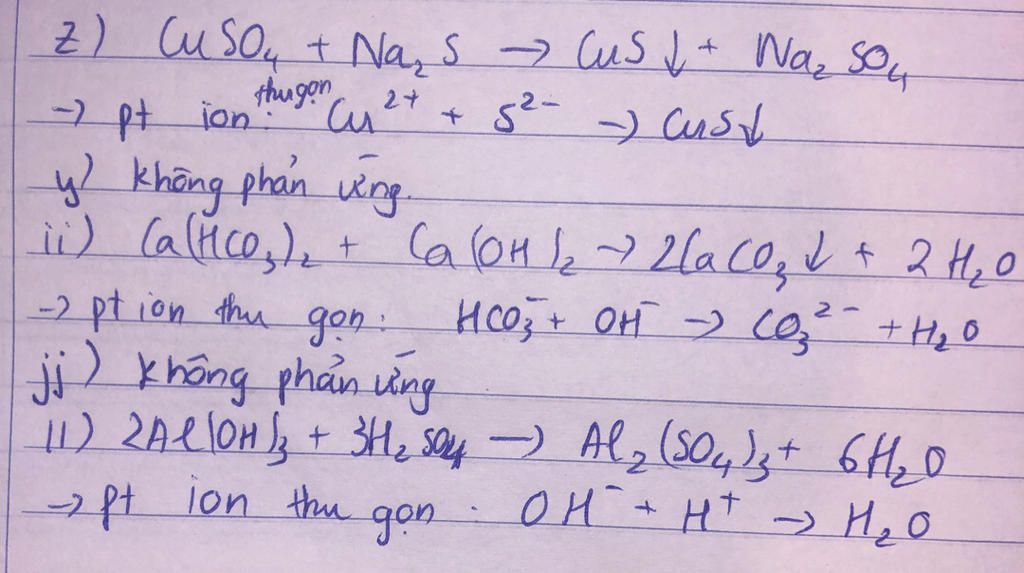 z) CuSO₄ + Na₂S → CuS↓ + Na₂SO₄
→ pt ion thu gọn: Cu²⁺ + S²⁻ → CuS↓
y) không phản ứng.
ii) Ca(HCO₃)₂ + Ca(OH)₂ → 2CaCO₃↓ + 2H₂O
→ pt ion thu gọn: HCO₃⁻ + OH⁻ → CO₃²⁻ + H₂O
jj) không phản ứng
ll) 2Al(OH)₃ + 3H₂SO₄ → Al₂(SO₄)₃ + 6H₂O
→ pt ion thu gọn: OH⁻ + H⁺ → H₂O